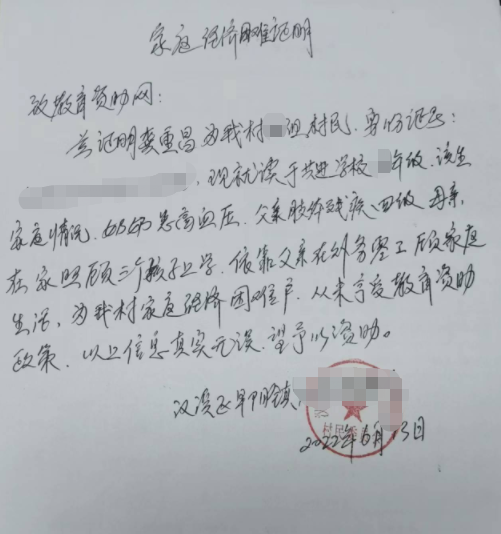 家庭经济困难证明
致教育资助网：
兹证明龚重昌为我村 组村民.身份证号：
，现就读于共进学校 年级.该生
家庭情况.奶奶患高血压.父亲肢体残疾四级.母亲.
在家照顾三个孩子上学.依靠父亲在外务零工顾家庭
生活，为我村家庭经济困难户.从未享受教育资助
政策.以上信息真实无误.望予以资助。
汉滨区早阳镇
村民委
2022年6月13日